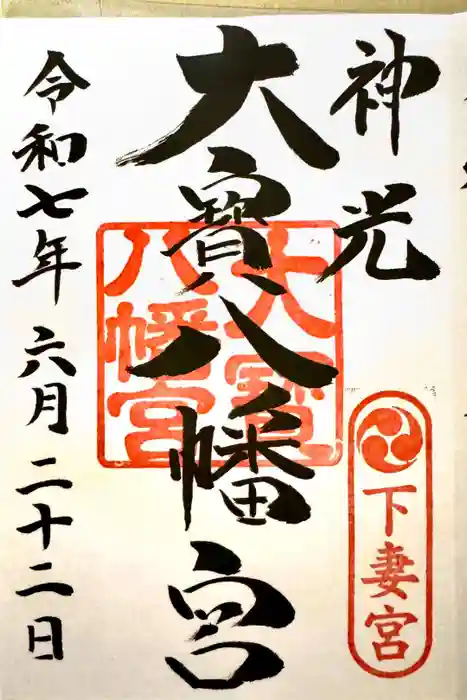 神光
下妻宮
大寶八幡宮
大寶八幡宮
令和七年六月二十二日